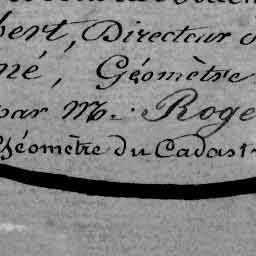 bert, Directeur
né, Géomètre
par Mr. Roge
Géomètre du Cadast